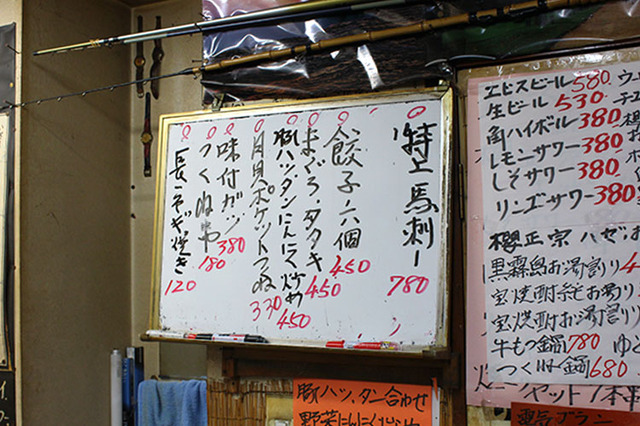 特上馬刺し
780
餃子六個
450
まぐろタタキ
450
豚ハツタンにんにく炒め
450
月見ポケットつくね
330
味付ガツ
380
つくね串
180
長ねぎ焼き
120
エビスビール580
生ビール530
角ハイボール380
レモンサワー380
しそサワー380
リンゴサワー380
櫻正宗
黒霧島お湯割り
宝焼酎
宝焼酎お湯割り
牛もつ鍋780
つくね鍋680
豚ハツ、タン合わせ
野菜にんにく
電気ブラン